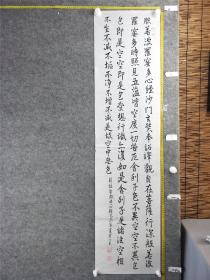 般若波羅蜜多心經沙門玄奘奉詔譯觀自在菩薩行深般若波
羅蜜多時照見五蘊皆空度一切苦厄舍利子色不異空空不異色
色即是空空即是色受想行識亦復如是舍利子是諸法空相
不生不滅不垢不淨不增不減是故空中無色